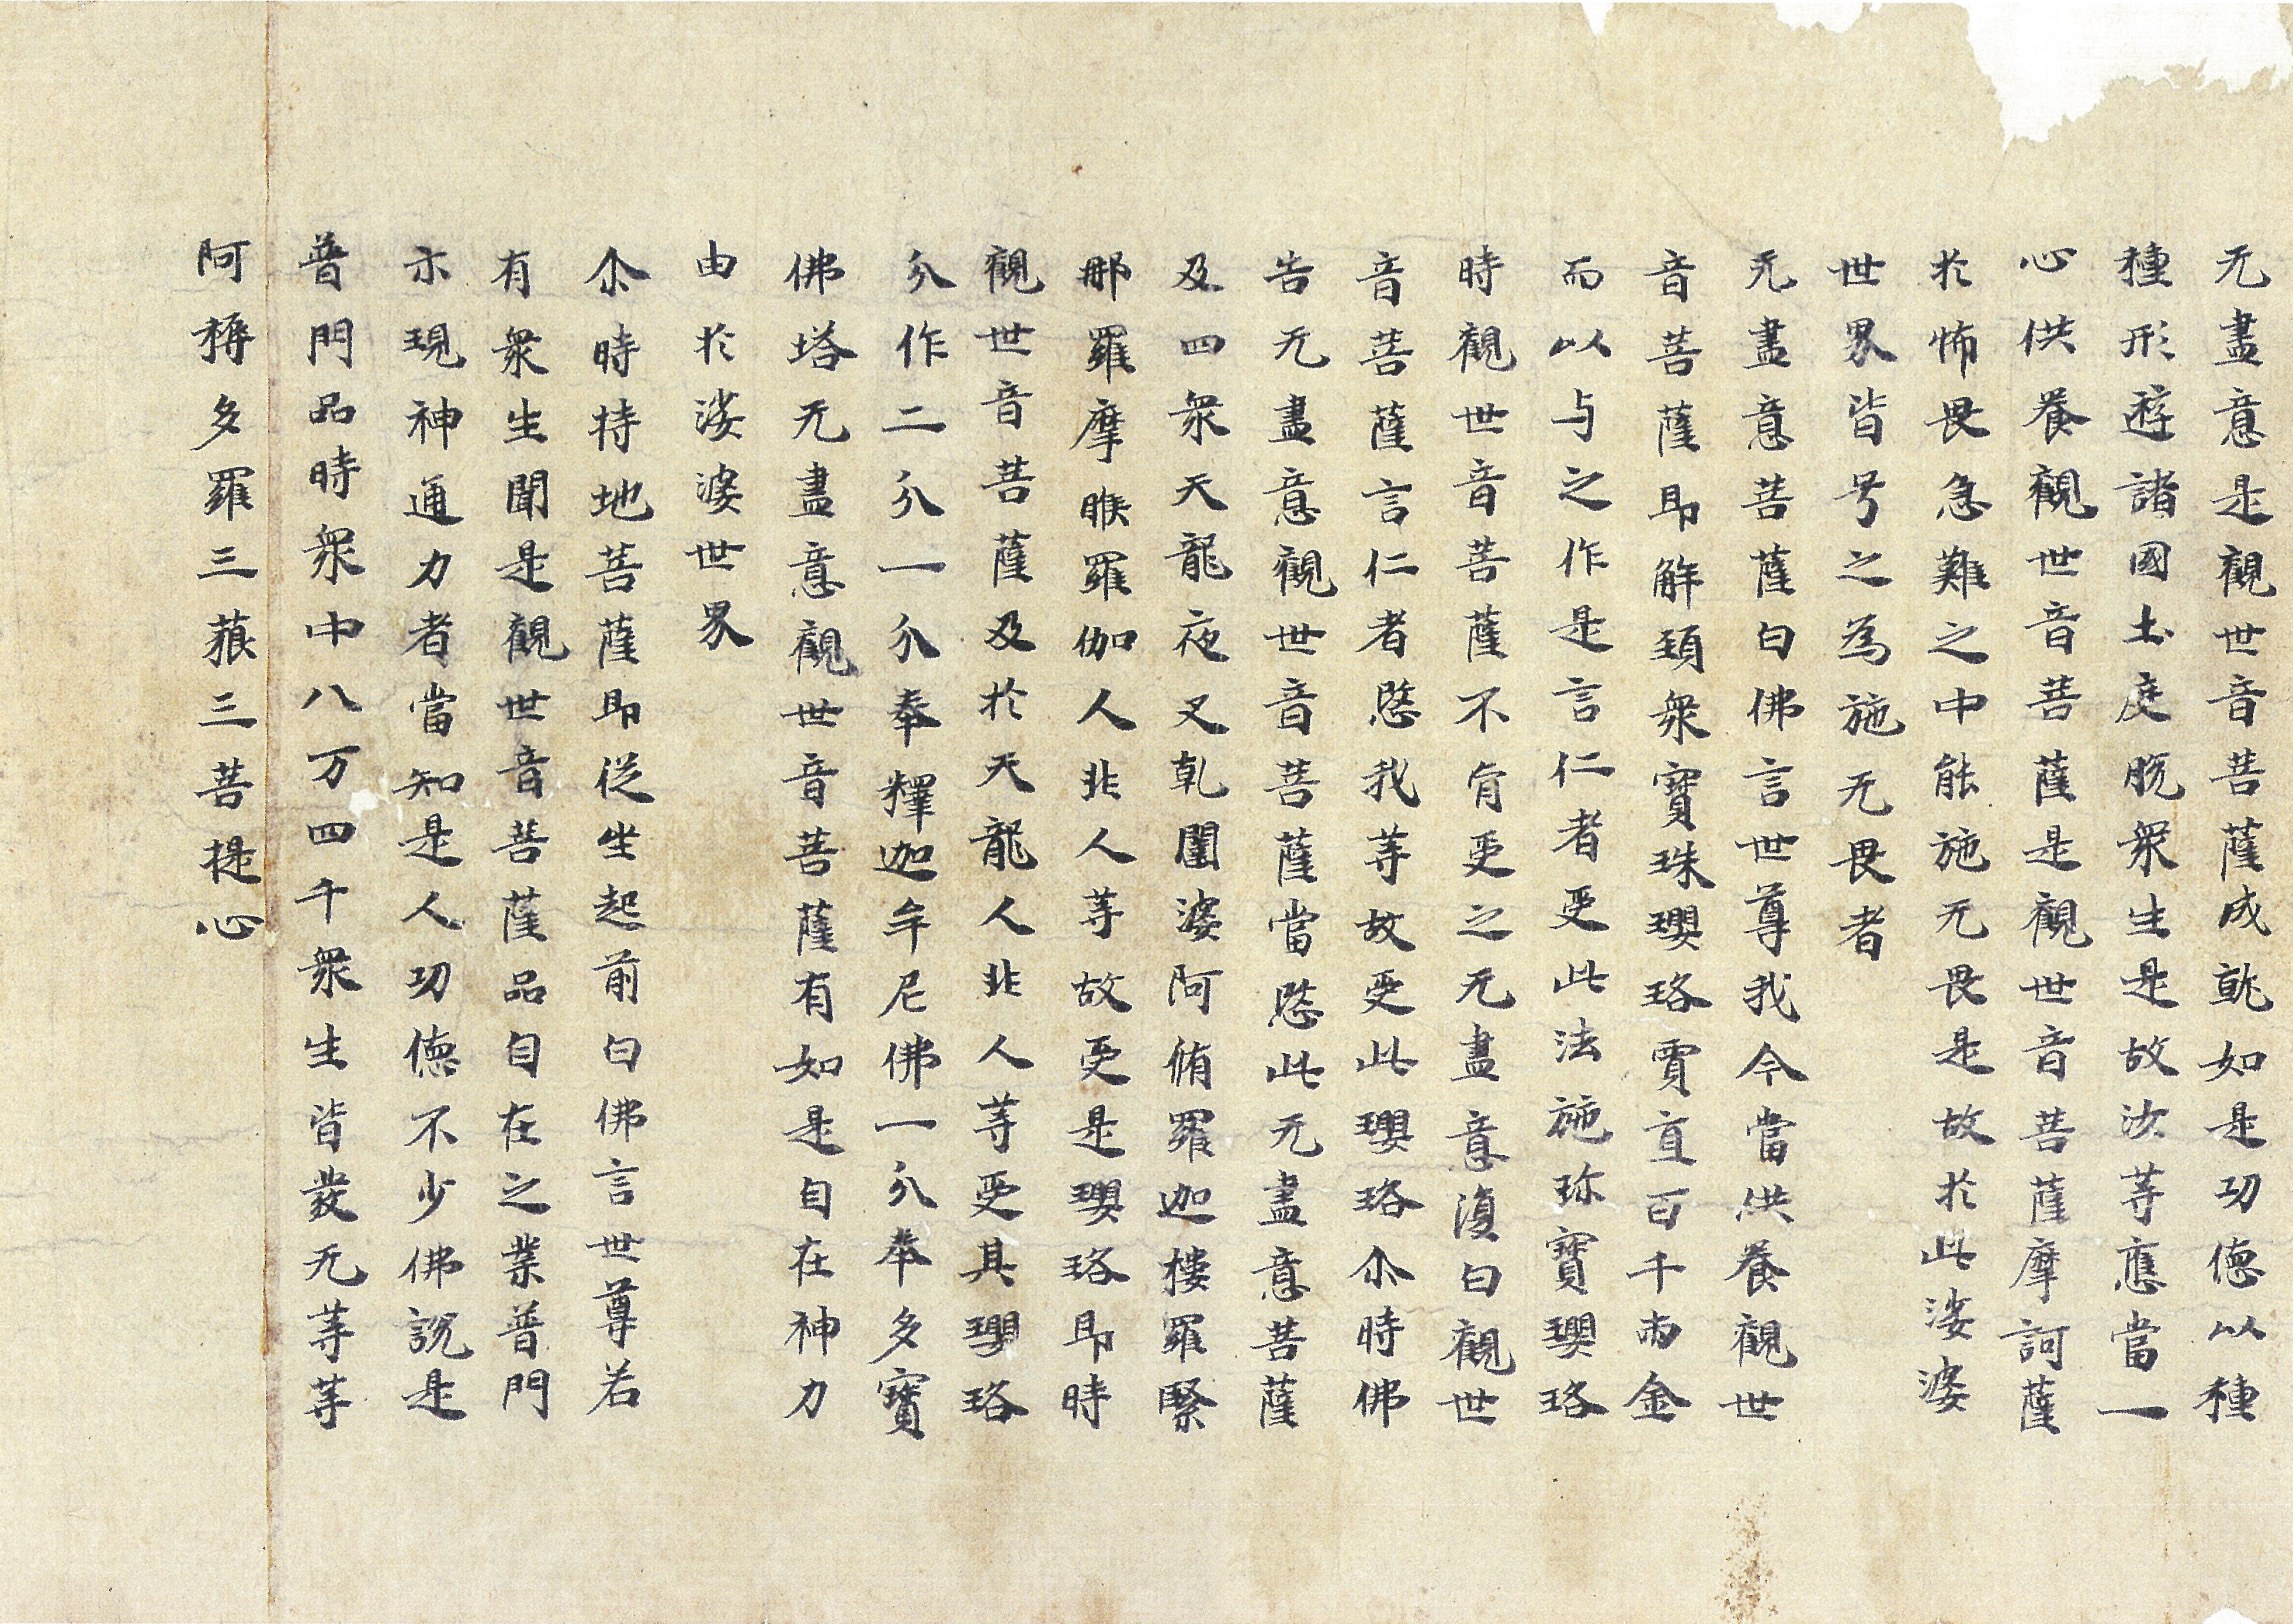 无盡意是觀世音菩薩成就如是功德以種
種形遊諸國土度脫衆生是故汝等應當一
心供養觀世音菩薩是觀世音菩薩摩訶薩
於怖畏急難之中能施无畏是故於此娑婆
世界皆号之為施无畏者
无盡意菩薩白佛言世尊我今當供養觀世
音菩薩即解頚衆寶珠瓔珞賈直百千兩金
而以与之作是言仁者受此法施珎寶瓔珞
時觀世音菩薩不肯受之无盡意復白觀世
音菩薩言仁者愍我等故受此瓔珞尒時佛
告无盡意觀世音菩薩當愍此无盡意菩薩
及四衆天龍夜叉乹闥婆阿脩羅迦樓羅緊
那羅摩睺羅伽人非人等故受是瓔珞即時
觀世音菩薩及於天龍人非人等受其瓔珞
分作二分一分奉釋迦牟尼佛一分奉多寶
佛塔无盡意觀世音菩薩有如是自在神力
由於娑婆世界
尒時持地菩薩即從坐起前白佛言世尊若
有衆生聞是觀世音菩薩品自在之業普門
示現神通力者當知是人功德不少佛說是
普門品時衆中八万四千衆生皆發无等等
阿耨多羅三藐三菩提心